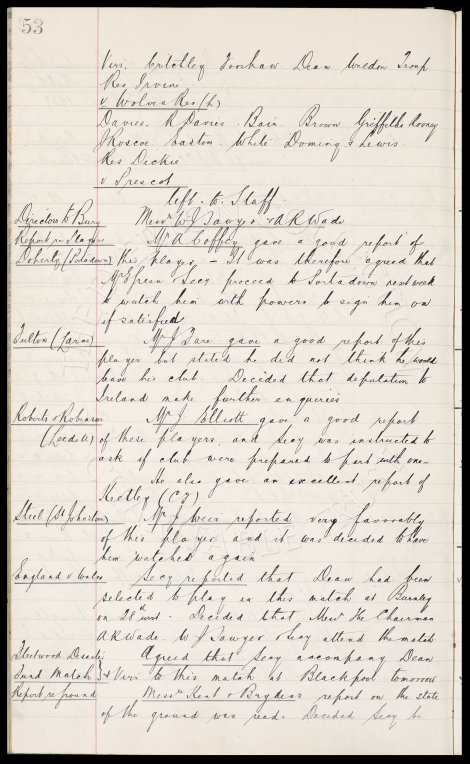 53
Virr. Critchley Forshaw. Dean Weldon Troup
Res Irvine
v Wolves Res (h)
Davies. R Davies. Bain. Brown Griffiths Rooney
J Roscoe. Easton. White Dominy & Lewis.
Res Dickie
v Prescot
left to Staff.
Directors to Bury Messrs W J Sawyer & A R Wade
Report re Player Mr A Coffey gave a good report of
Doherty (Portadown) this player. - It was therefore agreed that
Mr Green & Secy proceed to Portadown next week
to watch him with powers to sign him on
if satisfied.
Fulton (Larne) Mr J Fare gave a good report of this
player but stated he did not think he would
leave his club. Decided that deputation to
Ireland make further enquiries
Roberts & Robinson Mr J Elliott gave a good report
(Leeds U) of these players, and Secy was instructed to
ask if club were prepared to part with one.
He also gave an excellent report of
Keetley (C F)
Steel (St Johnstone) Mr J Weir reported very favorably
of this player and it was decided to have
him watched again
England v Wales Secy reported that Dean had been
selected to play in this match at Burnley
on 28th inst. Decided that Messrs the Chairman
A R Wade W J Sawyer & Secy attend the match.
Fleetwood Agreed that Secy accompany Dean
Fund Match } & Virr to this match at Blackpool tomorrow
Report re ground Messrs Kent & Brydens report on the state
of the ground was read. Decided Secy be